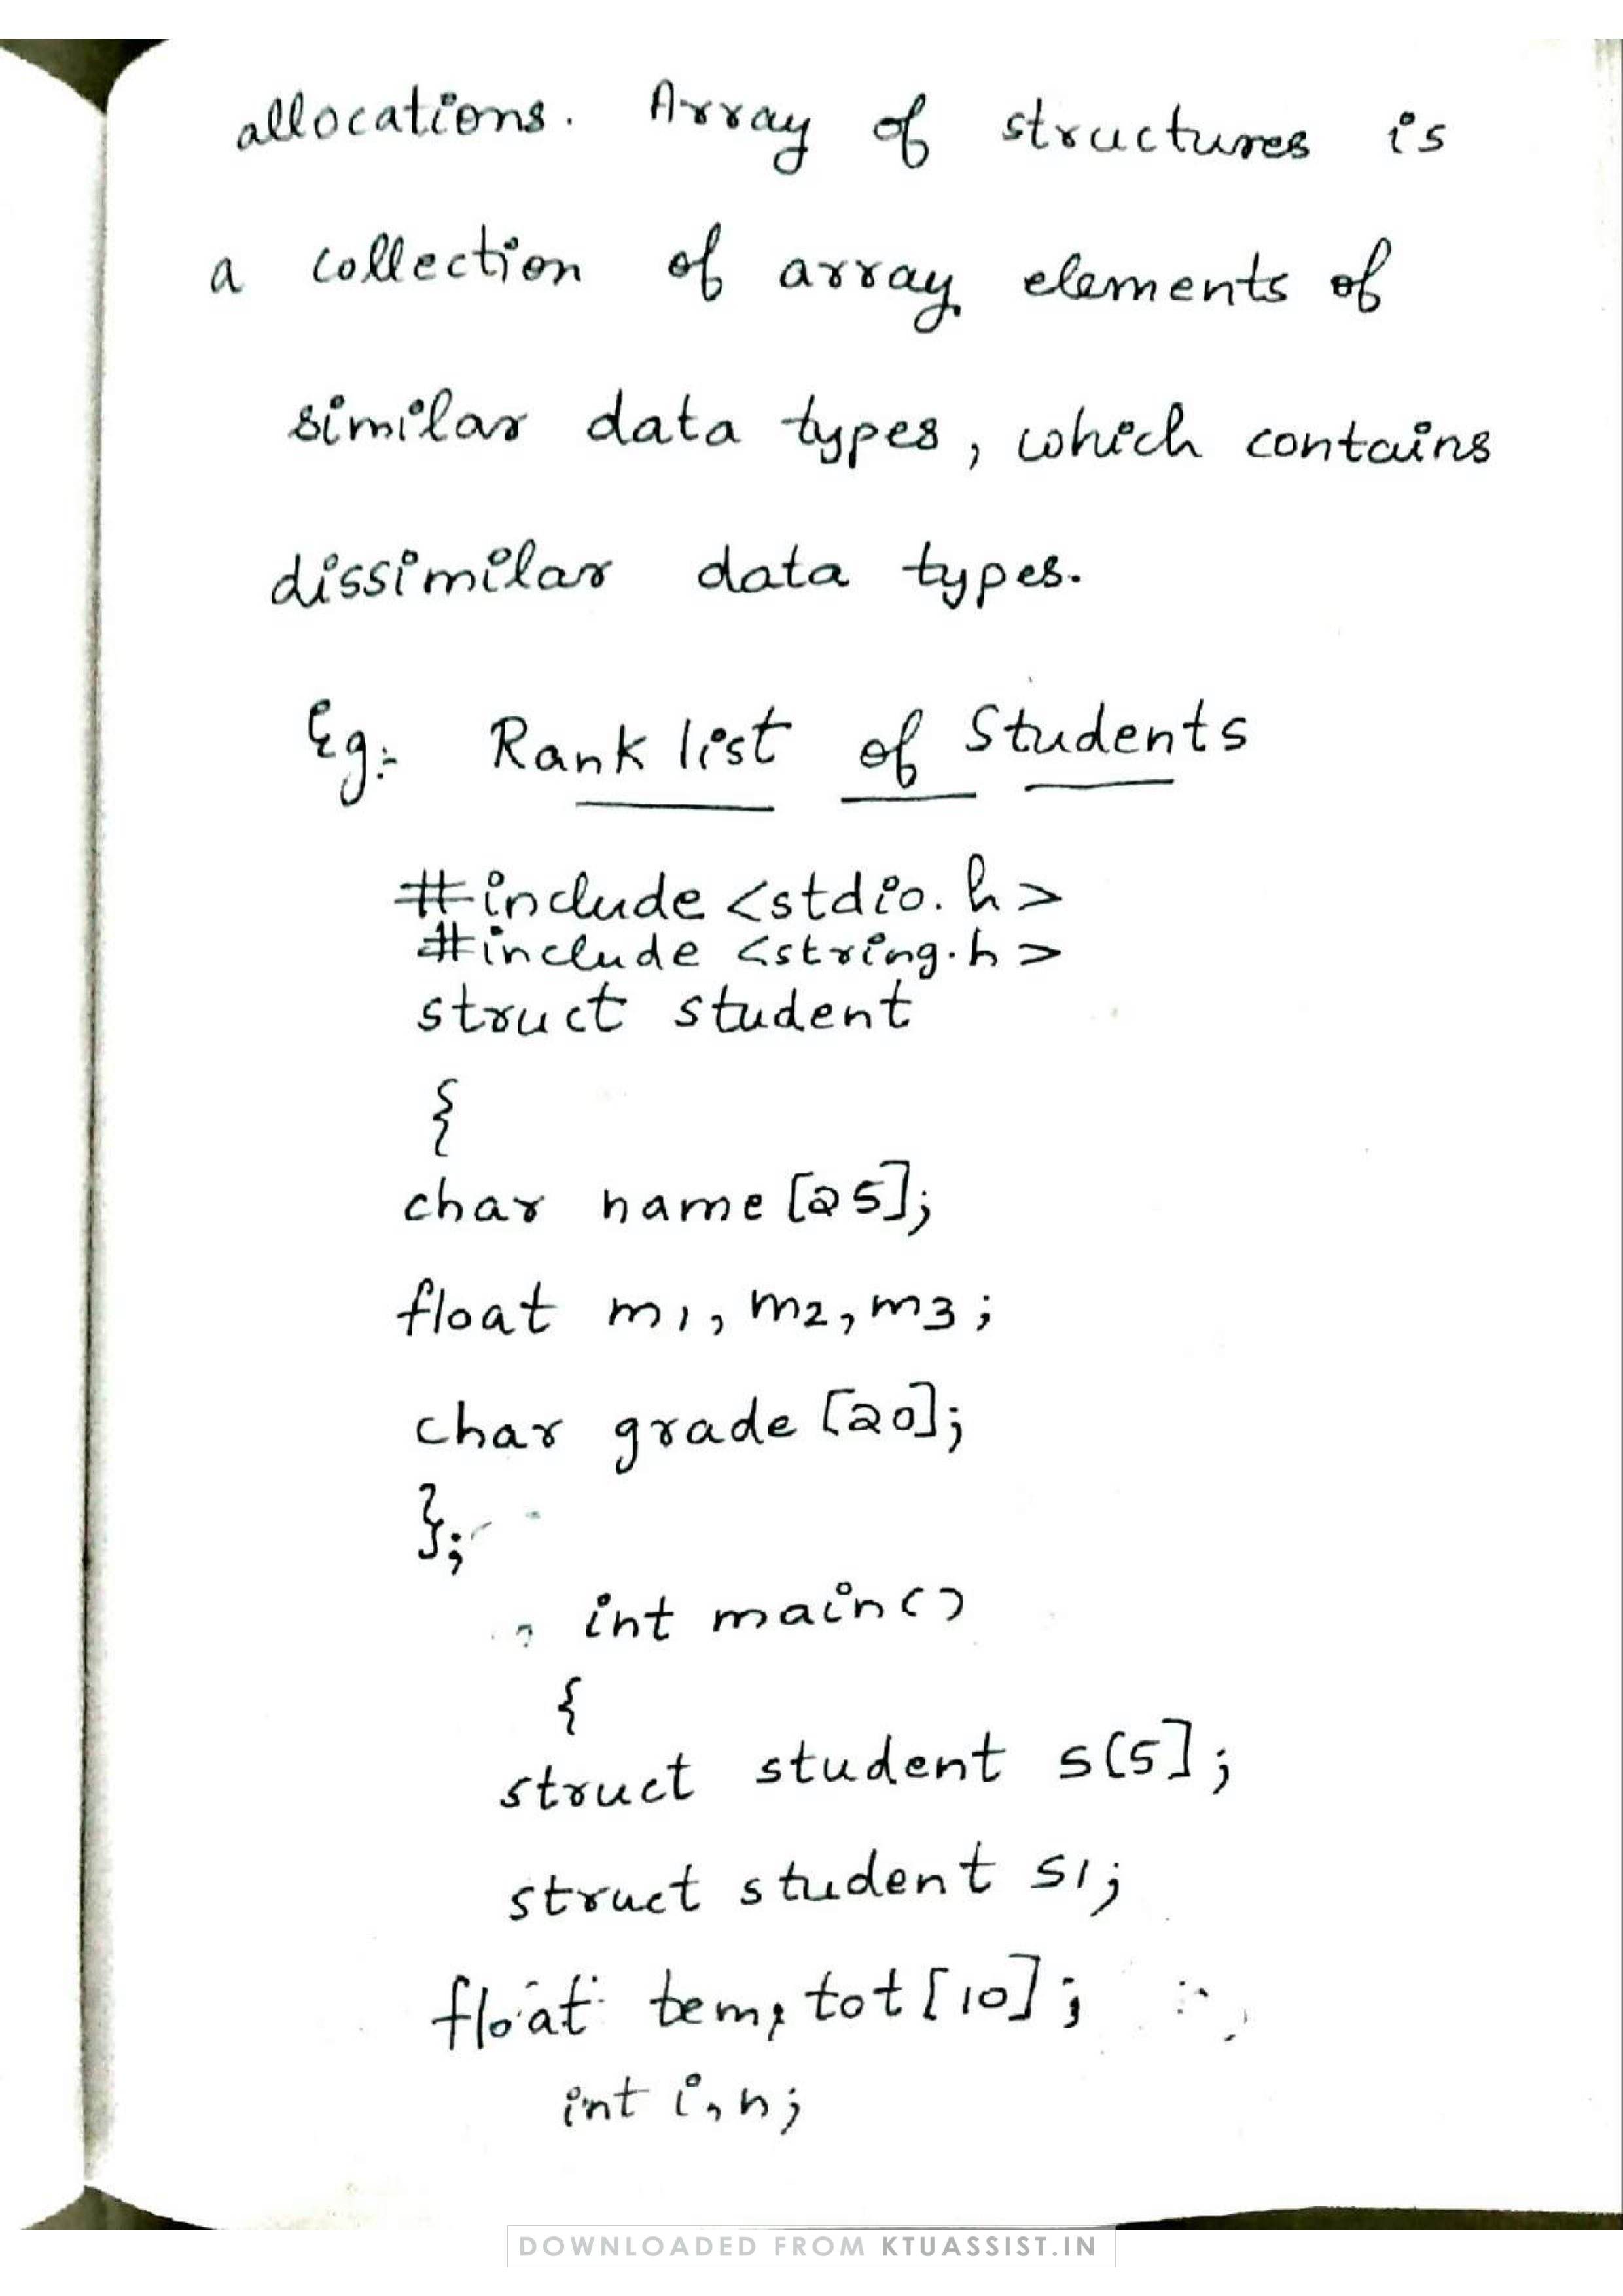 allocations. Array of structures is
a collection of array elements of
similar data types, which contains
dissimilar data types.
Eg:- Rank list of Students
#include <stdio.h>
#include <string.h>
struct student
{
char name [25];
float m1, m2, m3;
char grade [20];
};
int main()
{
struct student s[5];
struct student s1;
float temp, tot[10];
int i, n;
DOWNLOADED FROM KTUASSIST.IN